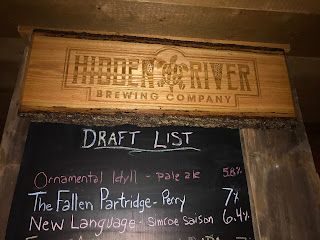 HIDDEN RIVER
BREWING COMPANY
DRAFT LIST
Ornamental Idyll - pale ale 5.8%
The Fallen Partridge - Perry 7%
New Language - Simcoe Saison 6.4%